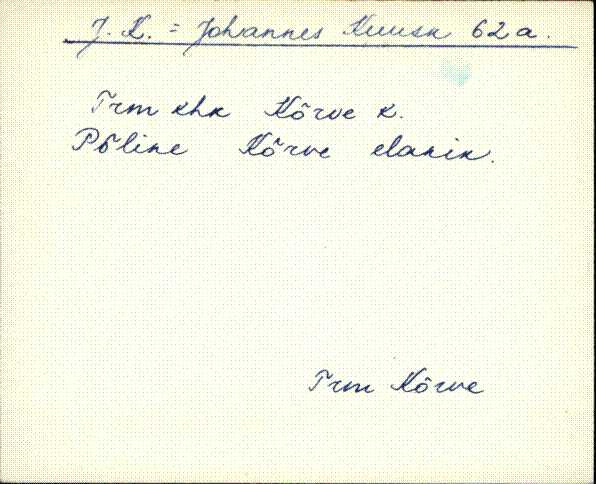 J. K. = Johannes Kuusk 62 a.
Trm khk Kõrve k.
Põline Kõrve elanik.
Trm Kõrve